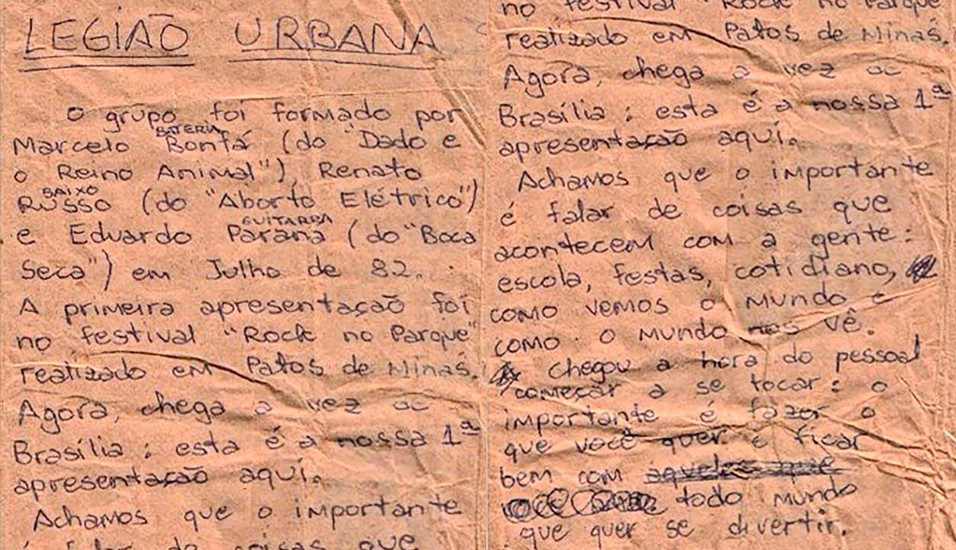 LEGIÃO URBANA
O grupo foi formado por
BATERIA
Marcelo Bonfá (do "Dado e
o Reino Animal"), Renato
BAIXO
Russo (do "Aborto Elétrico")
GUITARRA
e Eduardo Paraná (do "Boca
Seca") em Julho de 82.
A primeira apresentação foi
no festival "Rock no Parque"
realizado em Patos de Minas.
Agora, chega a vez de
Brasília: esta é a nossa 1ª
apresentação aqui.
Achamos que o importante
é falar de coisas que
no festival "Rock no Parque
realizado em Patos de Minas.
Agora, chega a vez de
Brasília: esta é a nossa 1ª
apresentação aqui.
Achamos que o importante
é falar de coisas que
acontecem com a gente:
escola, festas, cotidiano,
como vemos o mundo e
como o mundo nos vê.
Chegou a hora do pessoal
começar a se tocar: o
importante é fazer o
que você quer e ficar
bem com aqueles que
todo mundo
que quer se divertir.